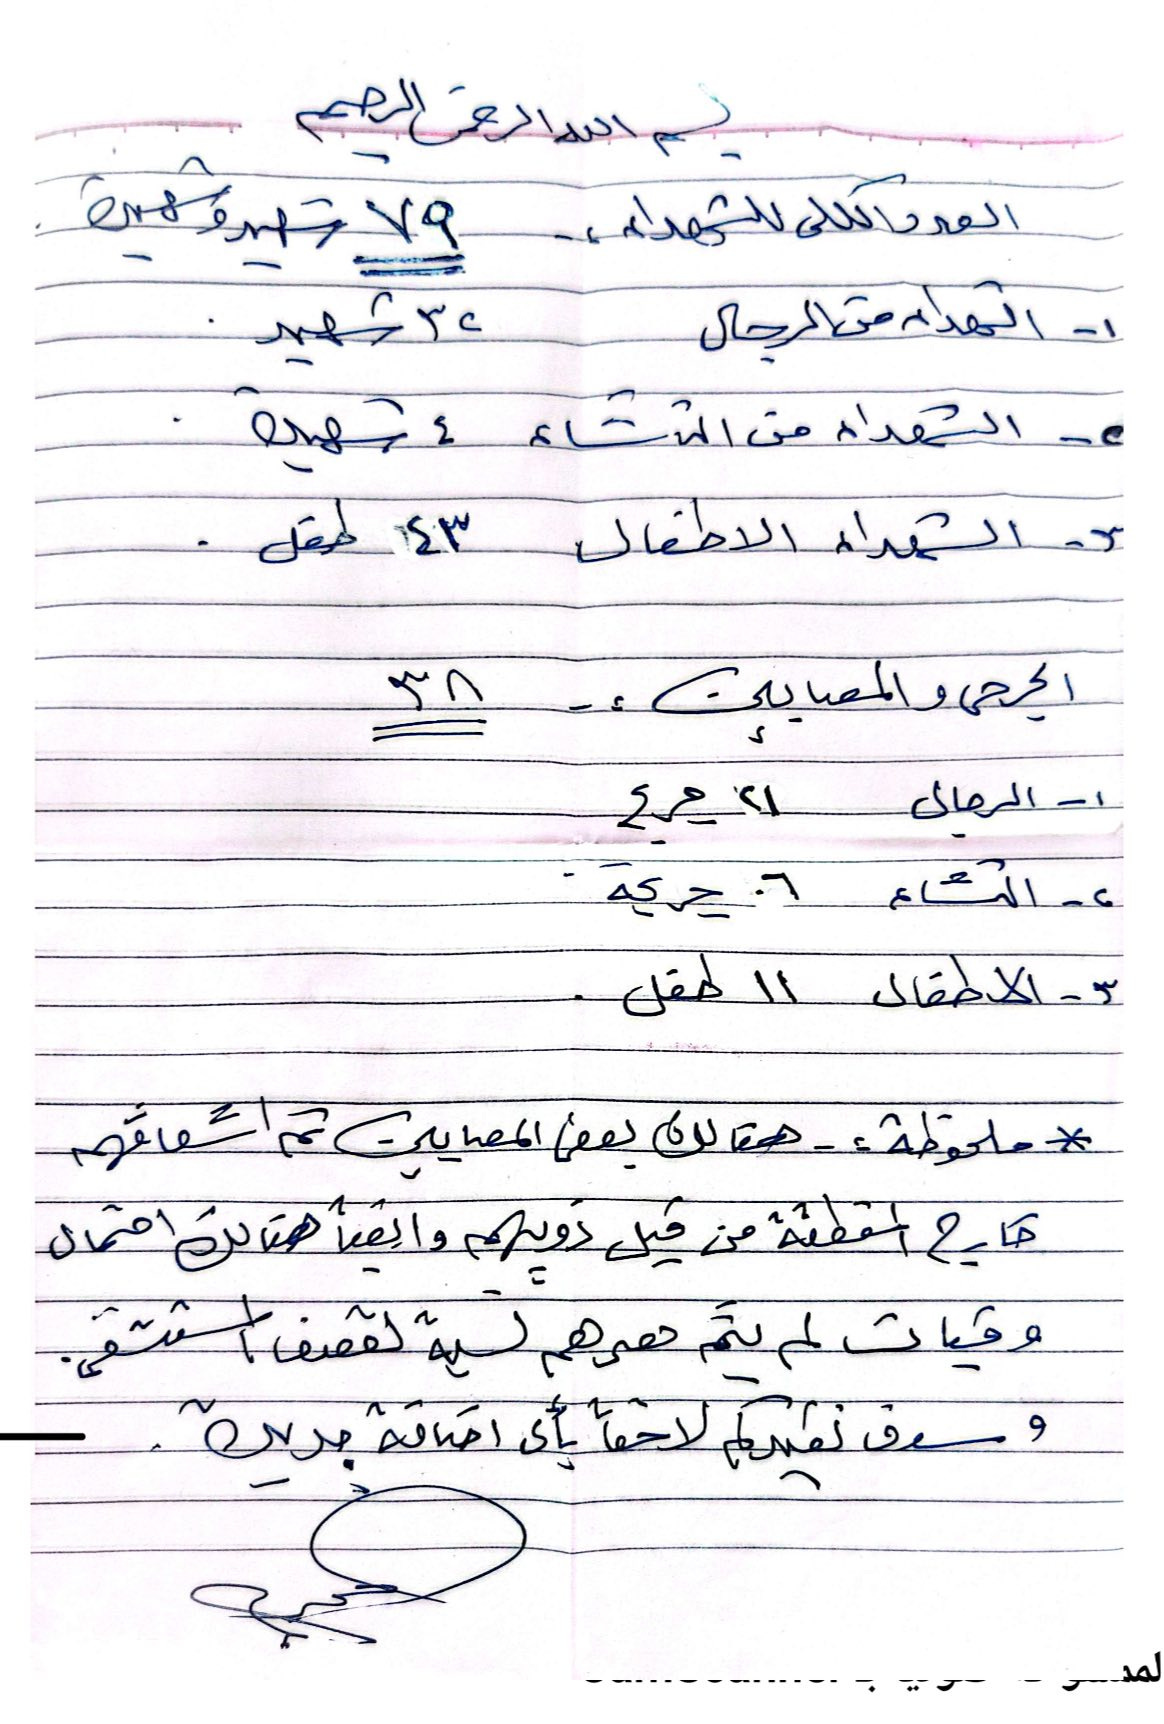 بسم الله الرحمن الرحيم
العدد الكلي للشهداء :- ٧٩ شهيد وشهيدة .
١- الشهداء من الرجال ٣٢ شهيد .
٢- الشهداء من النساء ٤ شهيدة .
٣- الشهداء الاطفال ٤٣ طفل .
الجرحى والمصابين :- ٣٨
١- الرجال ٢١ جريح
٢- النساء ٠٦ جريحة
٣- الاطفال ١١ طفل .
* ملحوظة :- هنالك بعض المصابين تم اسعافهم
خارج المنطقة من قبل ذويهم وايضاً هنالك احتمال
وفيات لم يتم حصرهم نسبة لقصف المستشفى .
وسوف نفيدكم لاحقاً بأى اضافة جديدة .
CamScanner الممسوحة ضوئيا بـ